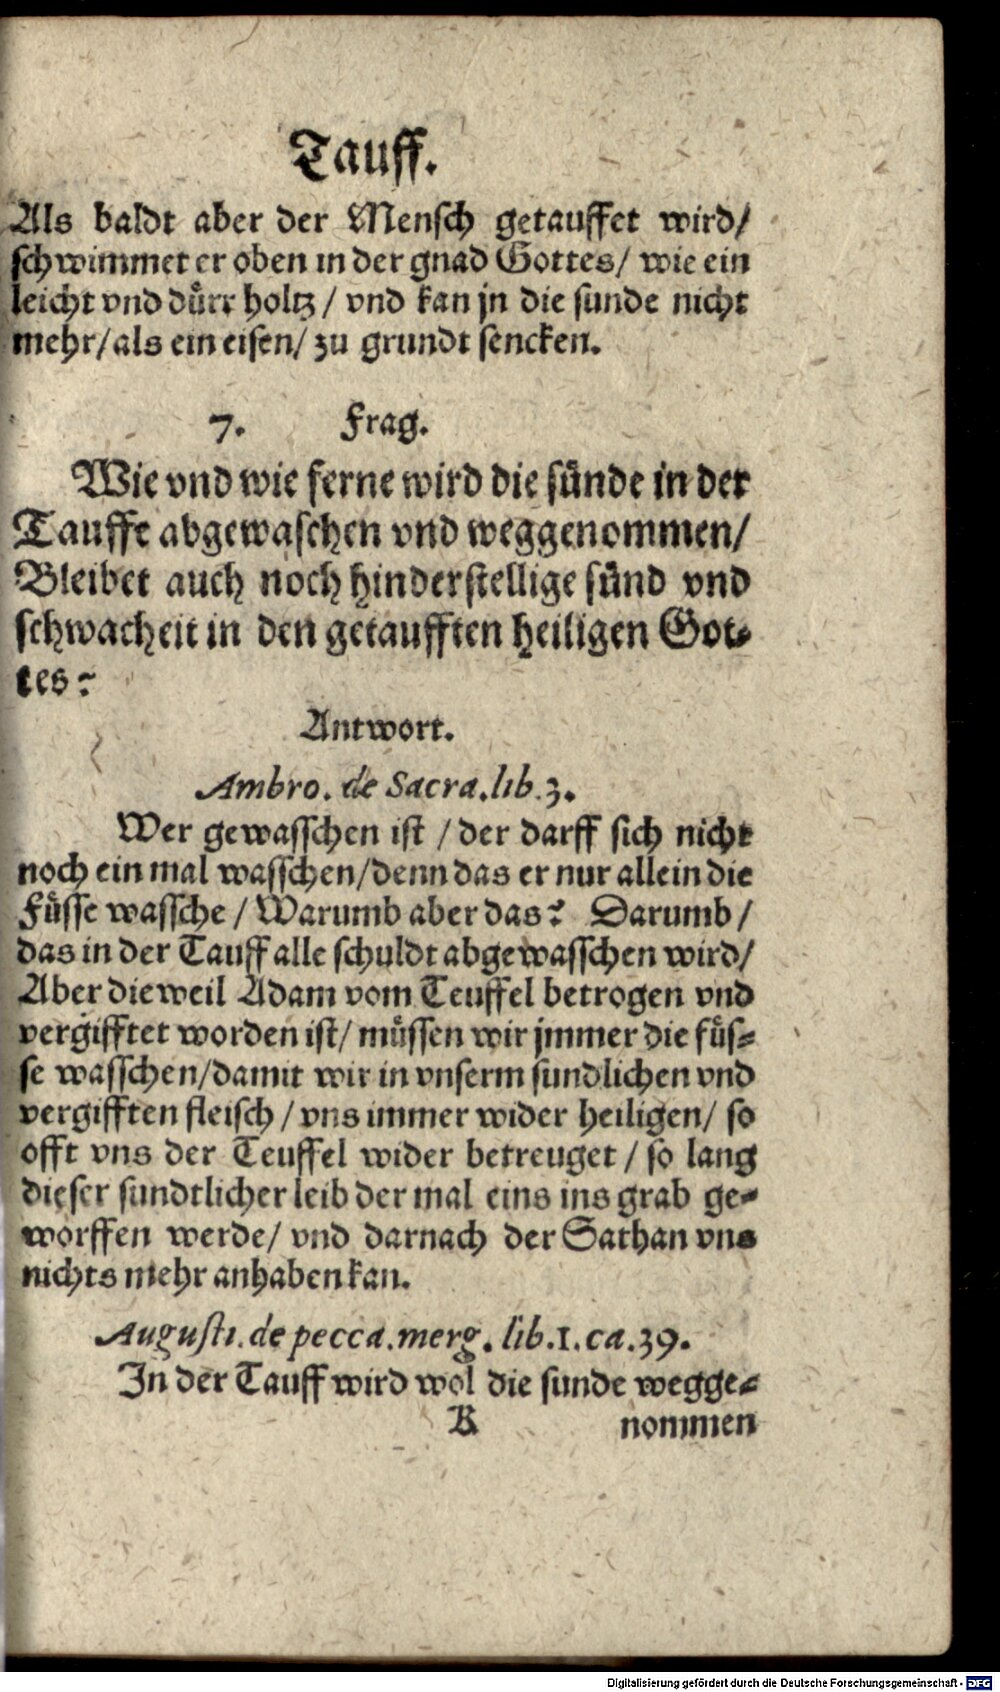 Tauff.
Als baldt aber der Mensch getauffet wird/
schwimmet er oben in der gnad Gottes/ wie ein
leicht vnd duͤrr holtz / vnd kan jn die sunde nicht
mehr/ als ein eisen/ zu grundt sencken.
7. Frag.
Wie vnd wie ferne wird die suͤnde in der
Tauffe abgewaschen vnd weggenommen/
Bleibet auch noch hinderstellige suͤnd vnd
schwacheit in den getaufften heiligen Got-
tes?
Antwort.
Ambro. de Sacra. lib. 3.
Wer gewasschen ist / der darff sich nicht
noch ein mal wasschen/ denn das er nur allein die
Fuͤsse wassche / Warumb aber das? Darumb/
das in der Tauff alle schuldt abgewasschen wird/
Aber dieweil Adam vom Teuffel betrogen vnd
vergifftet worden ist/ muͤssen wir jmmer die fuͤs-
se wasschen/ damit wir in vnserm sundlichen vnd
vergifften fleisch / vns immer wider heiligen/ so
offt vns der Teuffel wider betreuget / so lang
dieser sundtlicher leib der mal eins ins grab ge-
worffen werde/ vnd darnach der Sathan vns
nichts mehr anhaben kan.
Augusti. de pecca. merg. lib. 1. ca. 39.
In der Tauff wird wol die sunde wegge-
K nommen
Digitalisierung gefördert durch die Deutsche Forschungsgemeinschaft - DFG